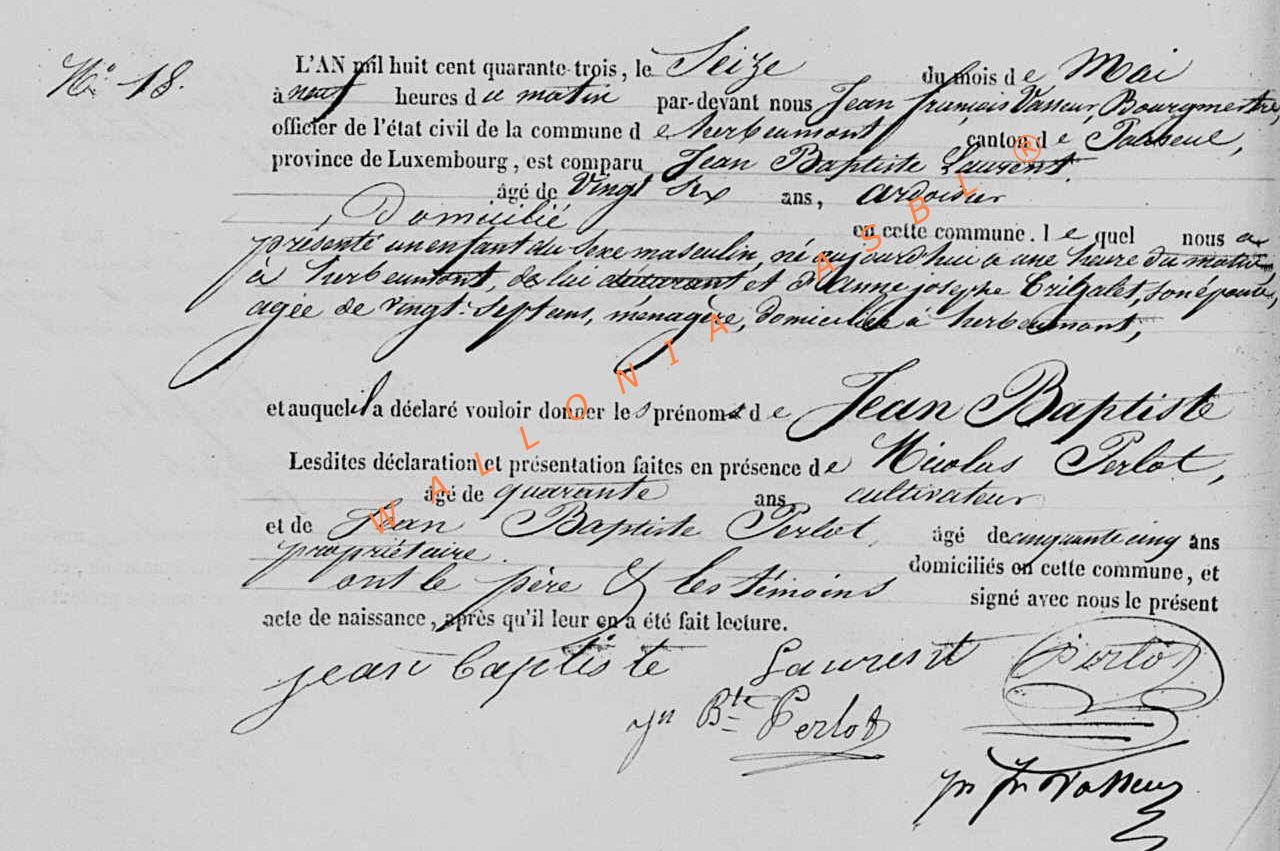 N° 18.
L'AN mil huit cent quarante-trois, le Seize du mois de Mai
à neuf heures du matin par-devant nous Jean françois Vasseur, Bourgmestre,
officier de l'état civil de la commune de herbeumont, canton de Paliseul,
province de Luxembourg, est comparu Jean Baptiste Laurent.
âgé de Vingt six ans, ardoisier
, Domicilié en cette commune. lequel nous a
présenté un enfant du sexe masculin, né aujourd'hui a une heure du matin
à herbeumont, de lui déclarant et d'anne josephe Trigalet, son épouse,
agée de vingt-sept ans, ménagère, domiciliée à herbeumont,
et auquel il a déclaré vouloir donner les prénoms de Jean Baptiste
Lesdites déclaration et présentation faites en présence de Nicolas Perlot,
âgé de quarante ans, cultivateur
et de Jean Baptiste Perlot, âgé de cinquante cinq ans
propriétaire. domiciliés en cette commune, et
ont le père & les témoins signé avec nous le présent
acte de naissance, après qu'il leur en a été fait lecture.
jean baptiste Laurent Perlot
Jn Bte Perlot
Jn fn Vasseur
WALLONIA ASBL ®